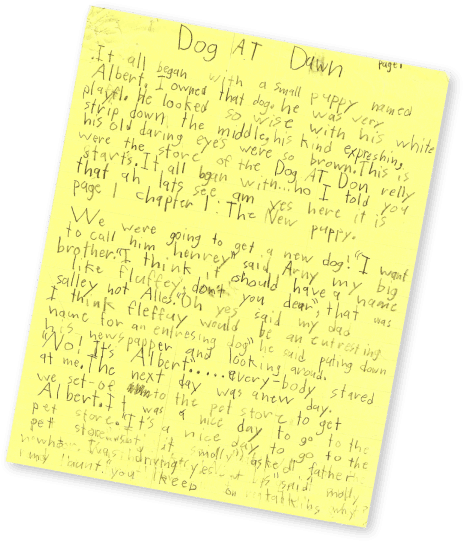 Dog AT Dawn
page 1
It all began with a small puppy named
Albert, I owned that dog. he was very
playfl. He looked so wise with his white
strip down the middle, his kind expreshin,
his old daring eyes were so brown. This is
were the store of the Dog AT Don relly
starts. It all bgan with...no I told you
that ah lats see am yes here it is
page 1 chapter 1: The New puppy.
We were going to get a new dog! "I want
to call him henrey" said Arny my big
brother. "I think it should have a name
like fluffey, don't you dear", that was
salley not Alles. "Oh yes said my dad
I think fleffay would be an entresting
name for an entresing dog" he said puting down
his newspapper and looking aroud.
"No! It's Albert".....every-body stared
at me. The next day was a new day.
we set-of to the pet store to get
Albert. It was a nice day to go to the
pet store. "It's a nice day to go to the
pet store it smolly" asked father
said molly
you keep talking why?